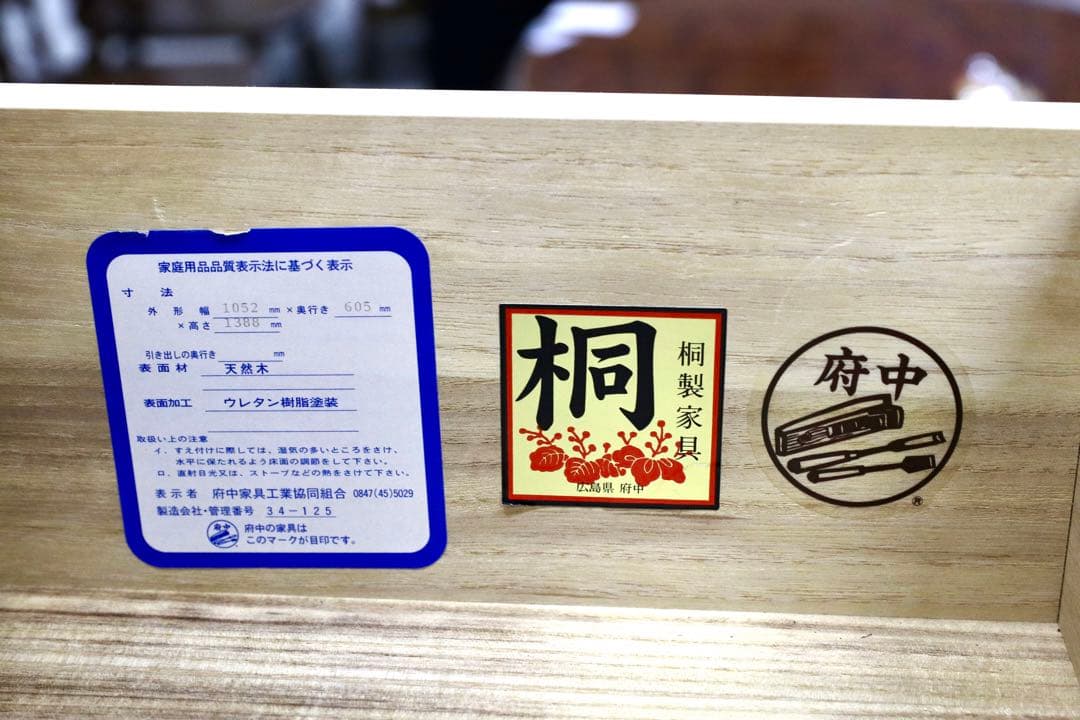 家庭用品品質表示法に基づく表示
寸 法
外 形 幅 1052 mm × 奥行き 605 mm
× 高さ 1388 mm
引き出しの奥行き mm
表 面 材 天然木
表面加工 ウレタン樹脂塗装
取扱い上の注意
イ. すえ付けに際しては、湿気の多いところをさけ、
水平に保たれるよう床面の調節をして下さい。
ロ. 直射日光又は、ストーブなどの熱をさけて下さい。
表 示 者 府中家具工業協同組合 0847(45)5029
製造会社・管理番号 34-125
府中
府中の家具は
このマークが目印です。
桐
桐製家具
広島県 府中
府中